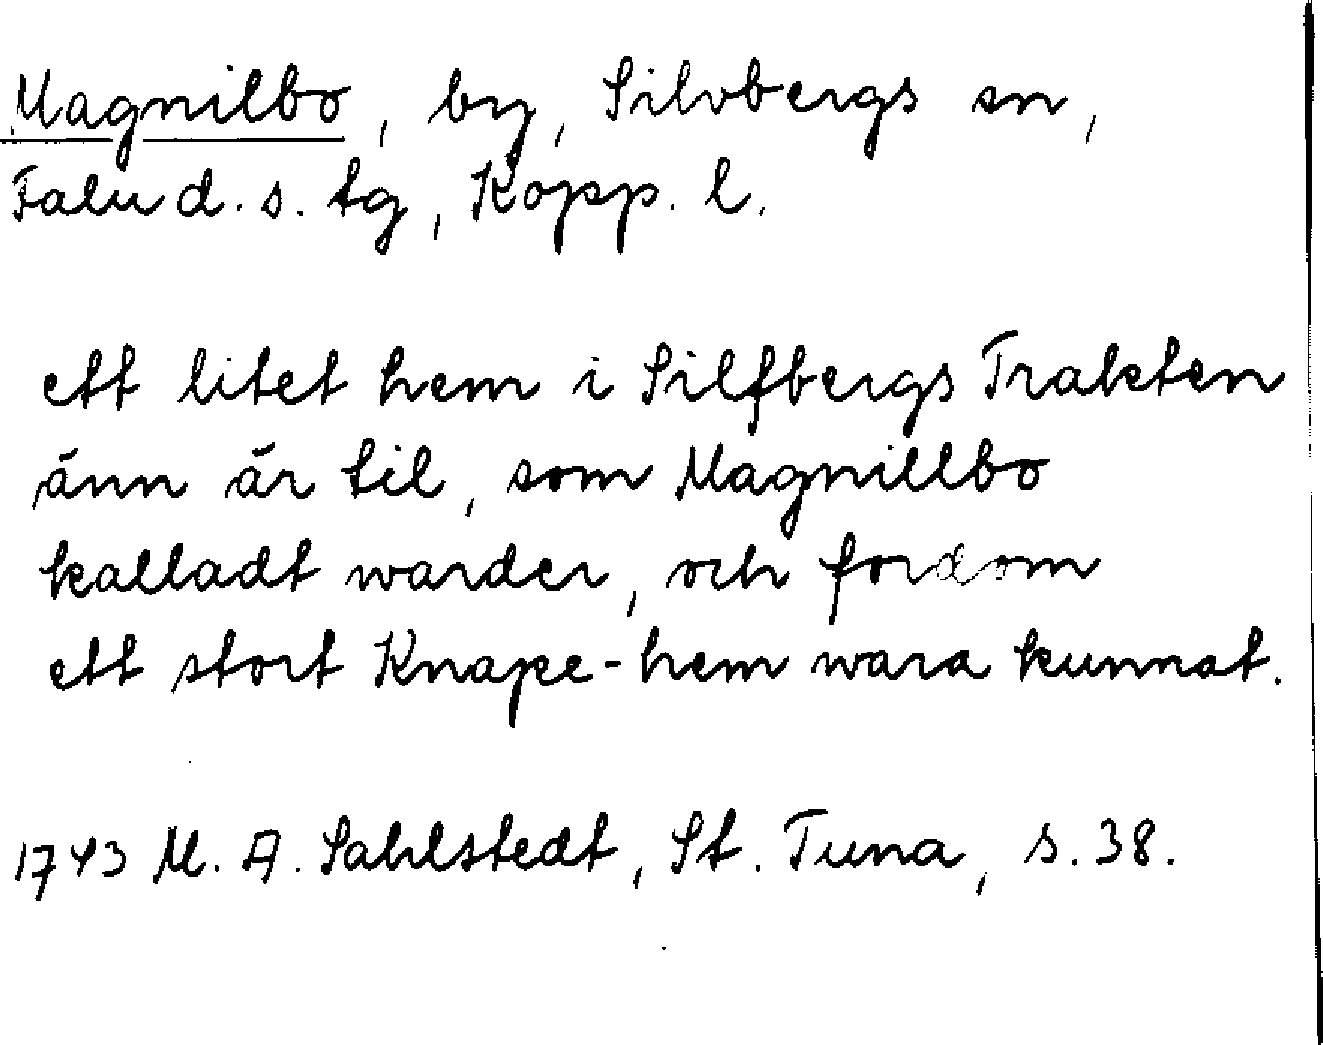 Magnilbo, by, Silvbergs sn,
Falu d. s. tg, Kopp. l.
ett litet hem i Silfbergs Trakten
änn är til, som Magnillbo
kalladt warder, och fordom
ett stort Knape-hem wara kunnat.
1743 M. A. Sahlstedt, St. Tuna, s. 38.